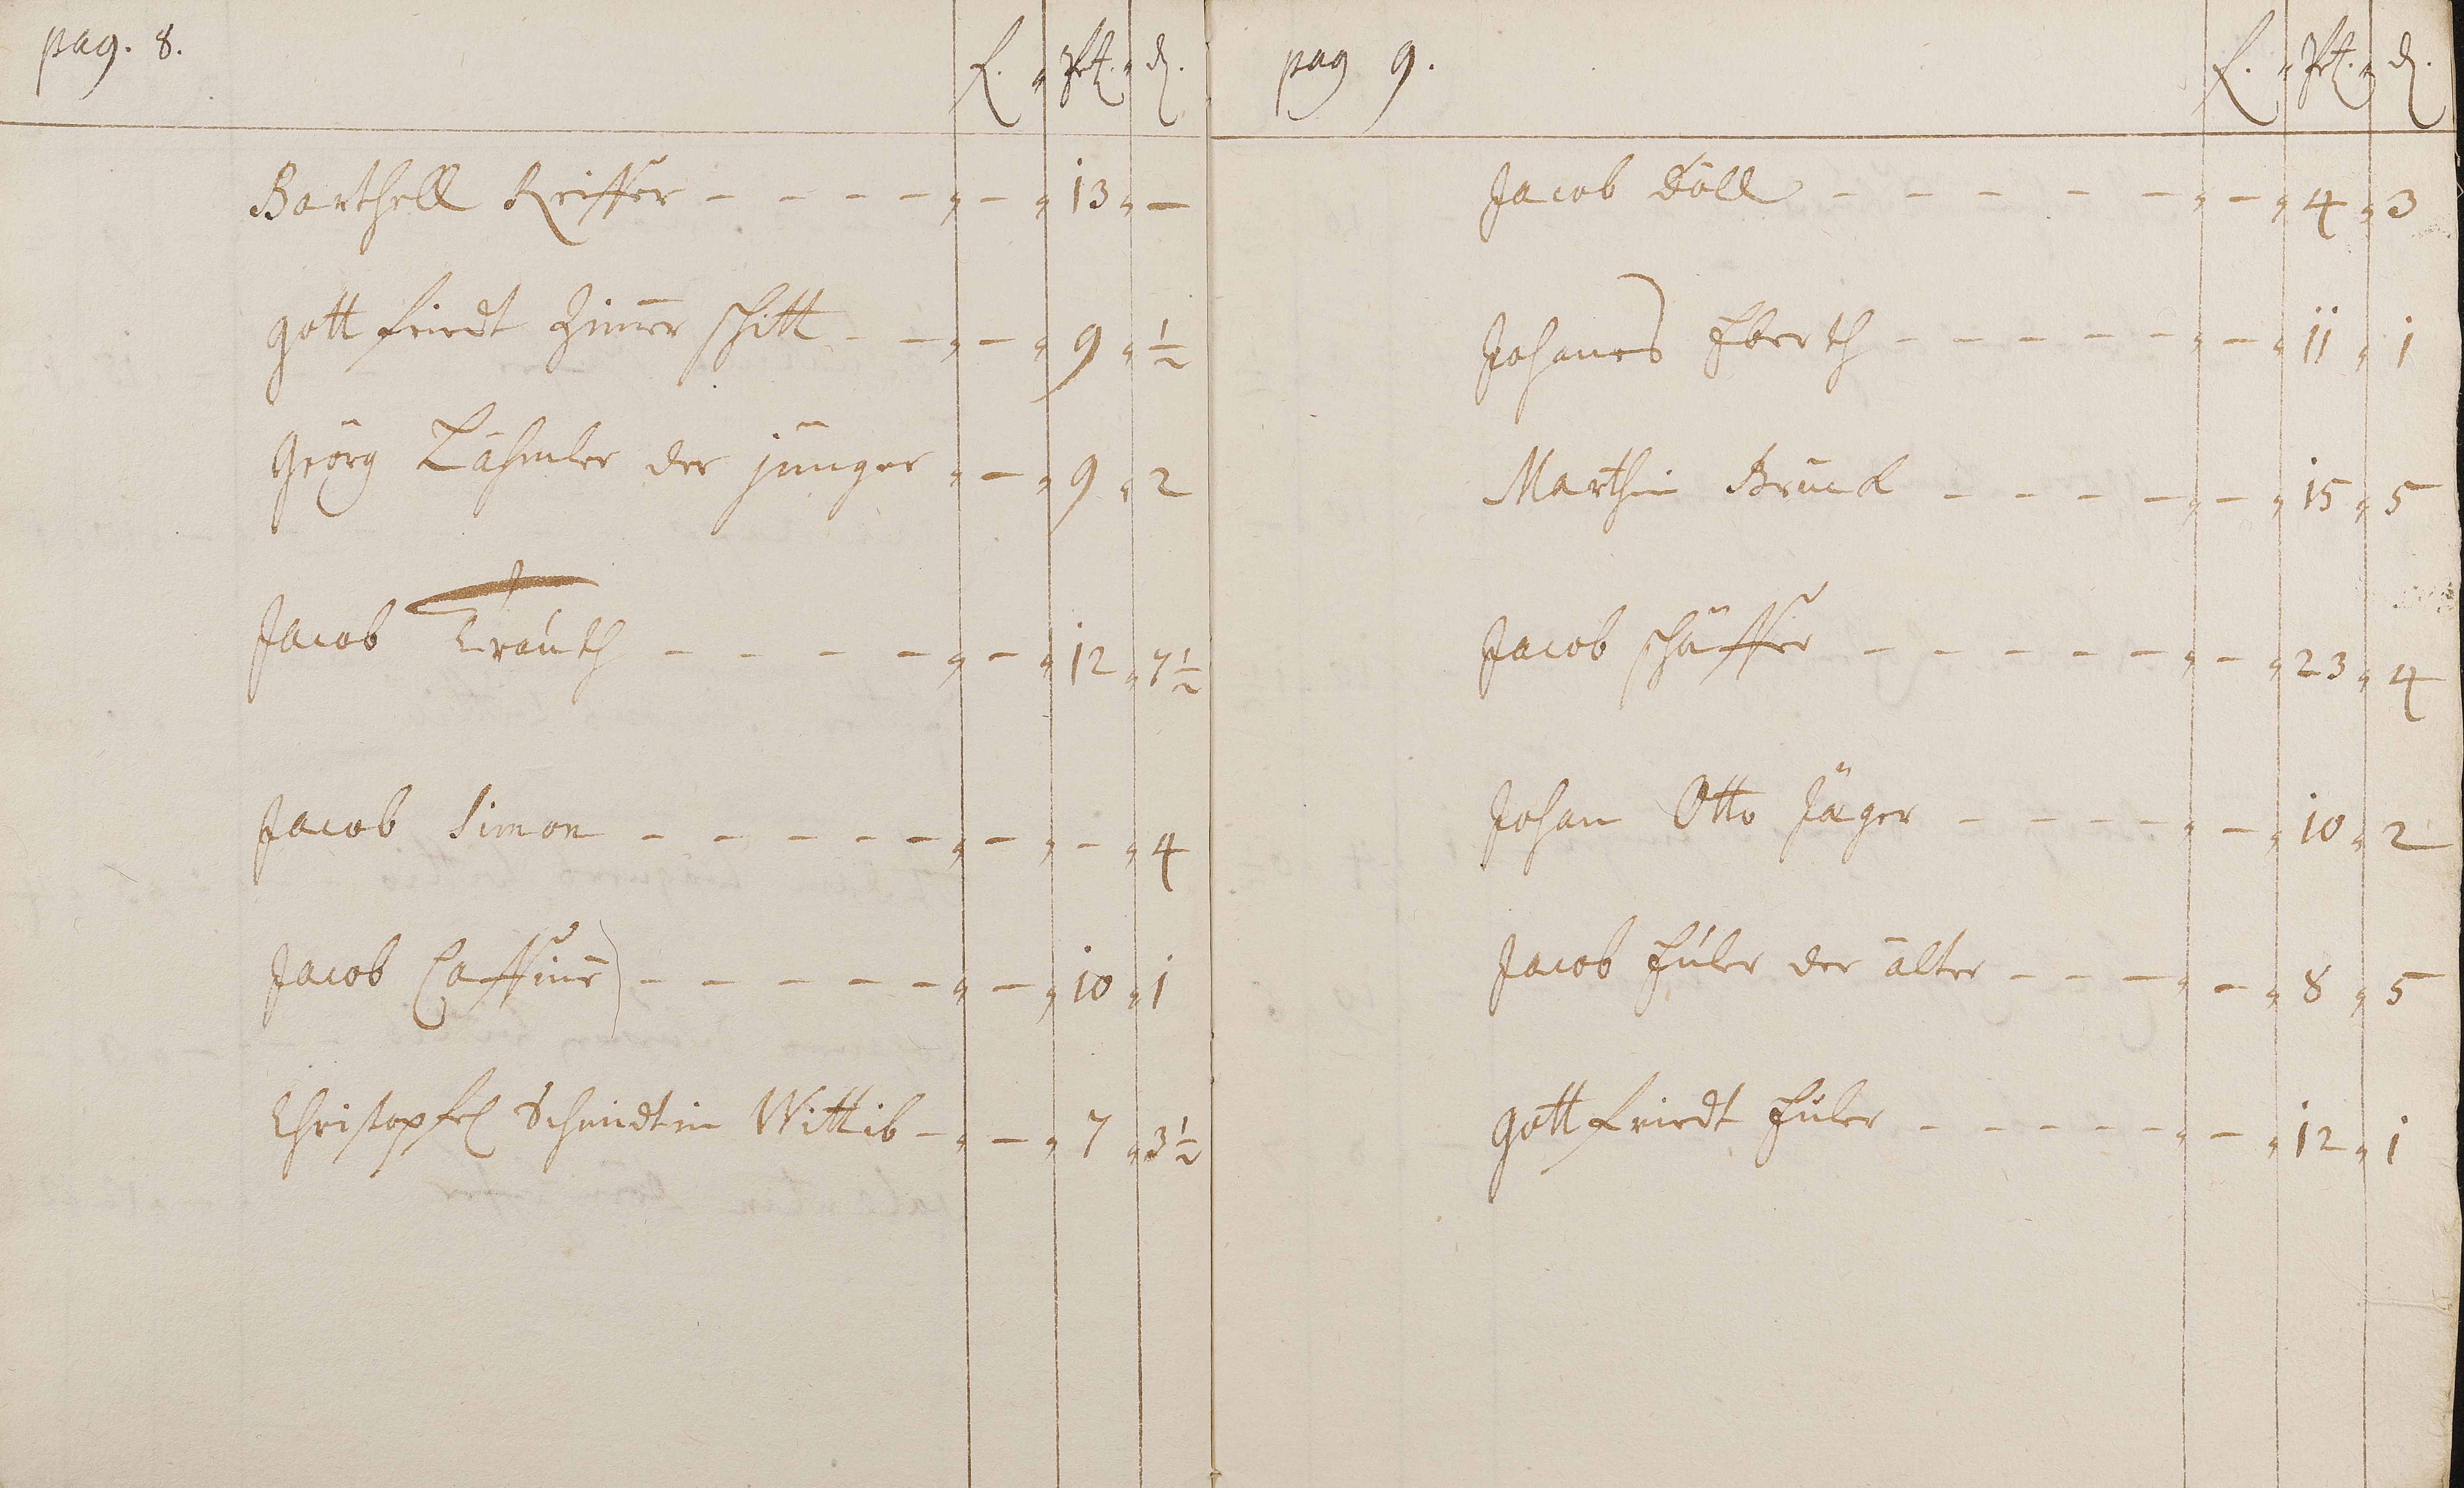 pag. 8.
f. „ xr. „ d.
Barthell Reiffer – – – – „ – „ 13 „ –
gott friedt Zimer schitt – – „ – „ 9 „ ½
Georg Lähmler der jünger „ – „ 9 „ 2
Jacob Trauth – – – – „ – „ 12 „ 7½
Jacob Simon – – – – – „ – „ – „ 4
Jacob Caffine – – – – – „ – „ 10 „ 1
Christopfel Schmidtin Wittib – „ – „ 7 „ 3½
pag 9.
f. „ xr. „ d.
Jacob Döll – – – – – „ – „ 4 „ 3
Johanes Eberth – – – – – „ – „ 11 „ 1
Marthin Bruck – – – – „ – „ 15 „ 5
Jacob schäffer – – – – – „ – „ 23 „ 4
Johan Otto Jäger – – – – „ – „ 10 „ 2
Jacob Euler der älter – – – „ – „ 8 „ 5
gott friedt Euler – – – – – „ – „ 12 „ 1